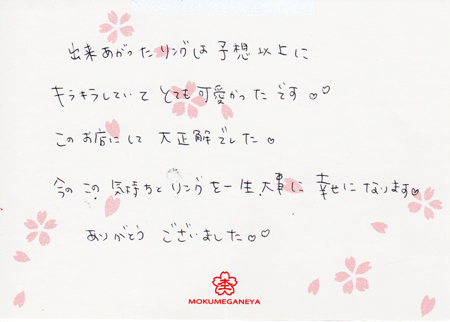 出来あがったリングは予想以上に
キラキラしていてとても可愛かったです♡♡
このお店にして大正解でした。
今のこの気持ちとリングを一生大事に幸せになります♡
ありがとうございました♡♡
杢
MOKUMEGANEYA